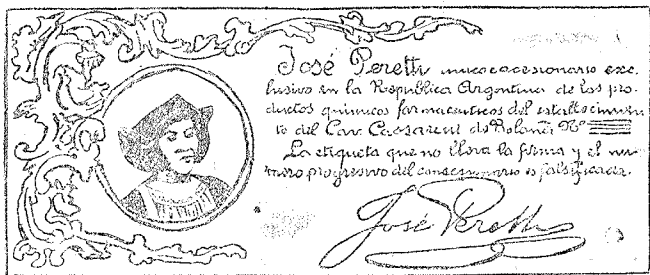 José Peretti unico cocesionario exc-
lusivo en la Republica Argentina de los pro-
ductos quimicos farmaceuticos del establecimien
to del Cav. de Nº
La etiqueta que no lleva la firma y el nu-
mero progresivo del concesionario es falsificada.
José Peretti